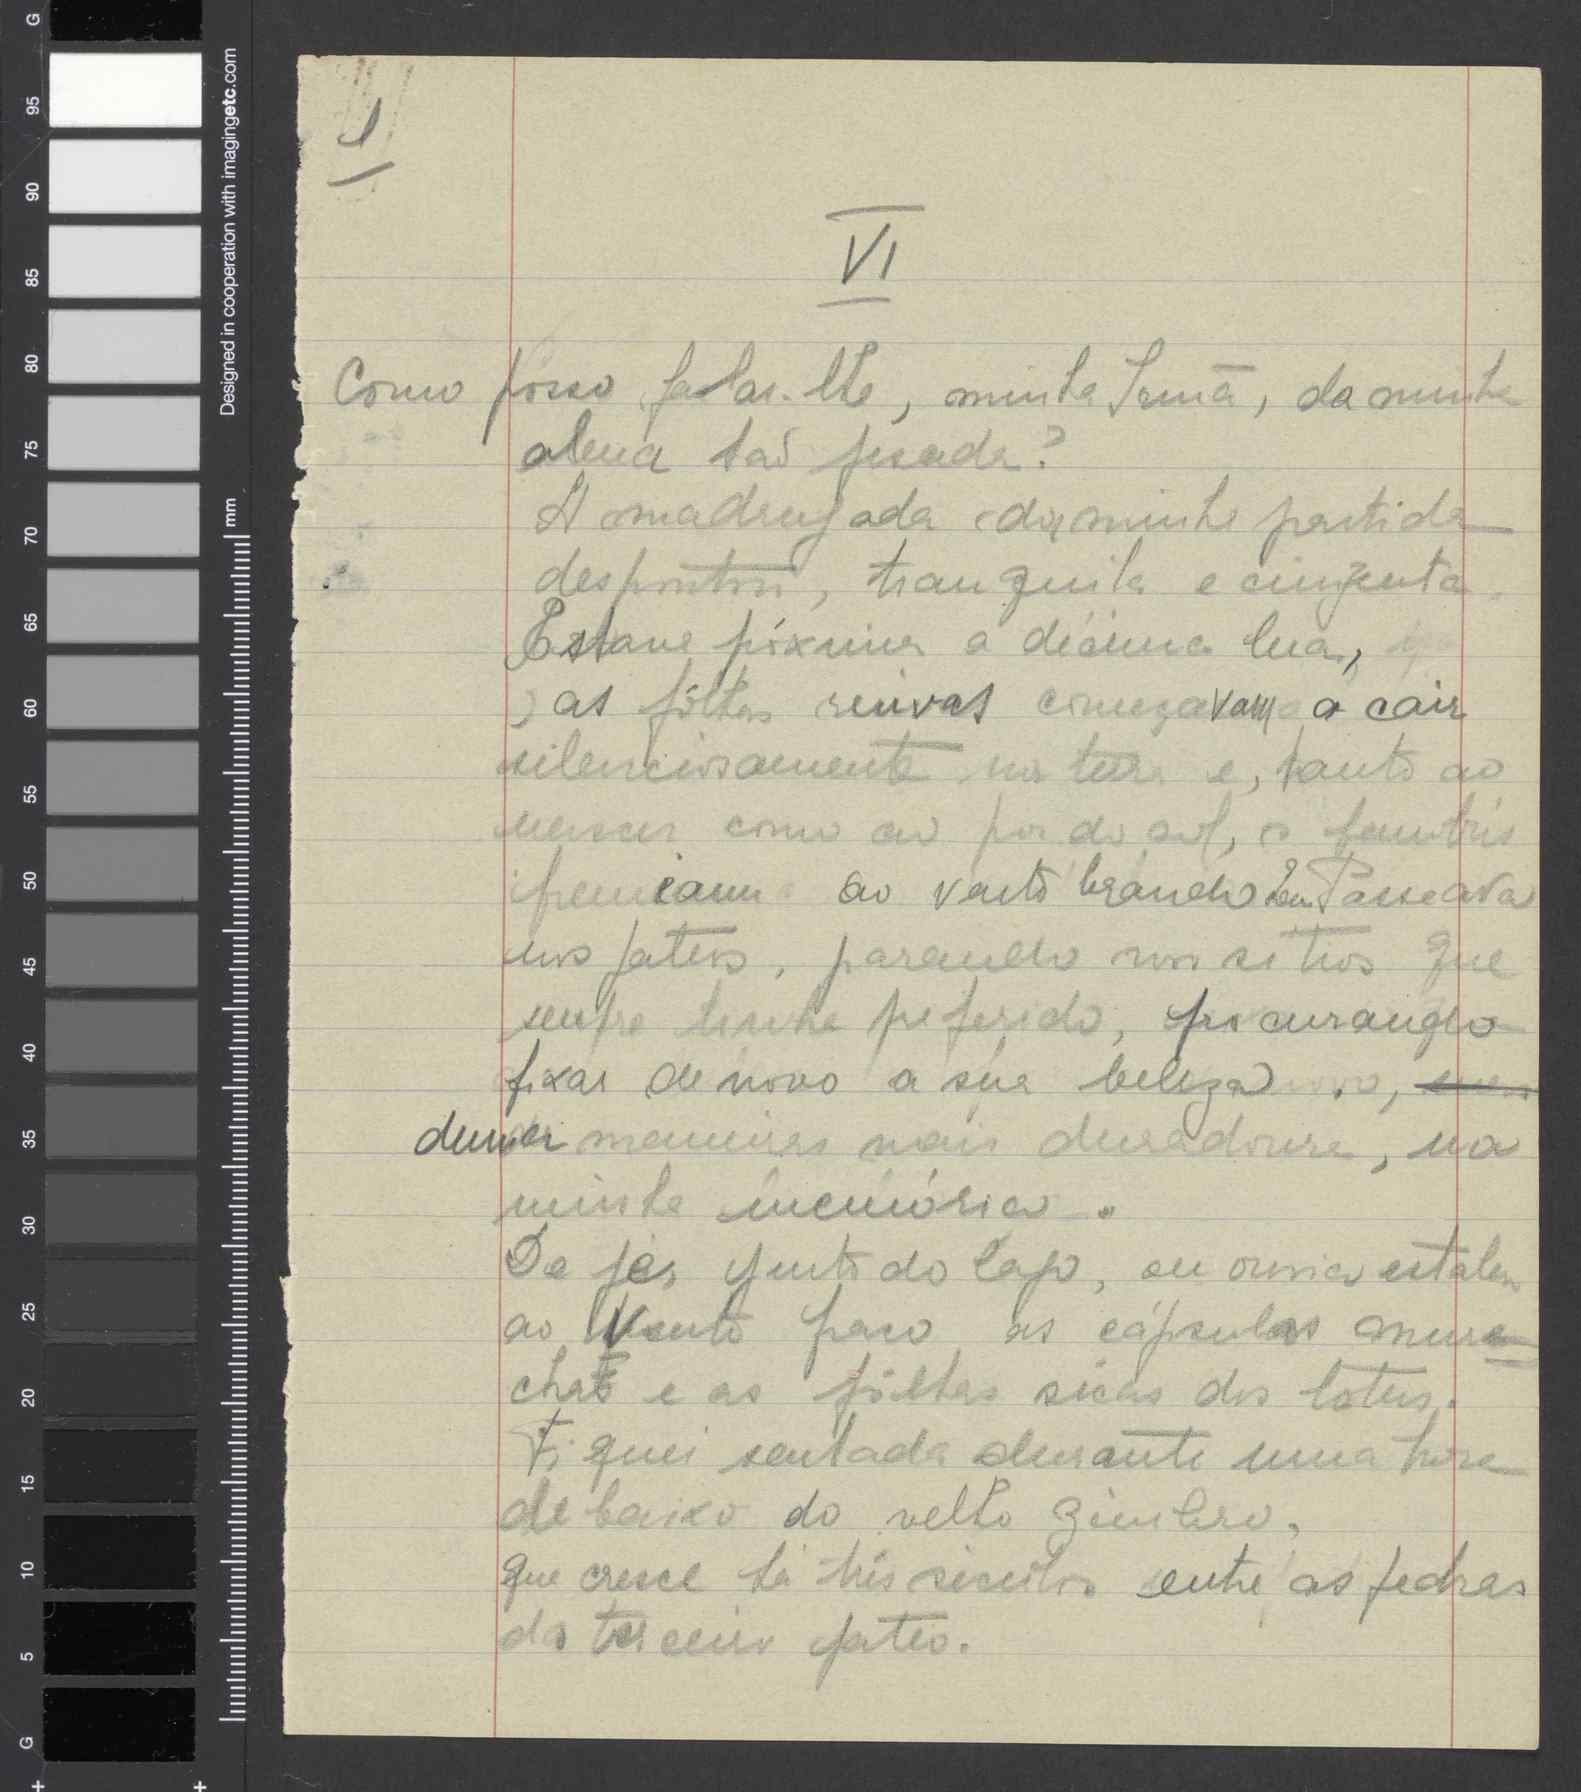 G
95
90
85
80
75
70
65
60
55
50
45
40
35
30
25
20
15
10
5
G
Designed in cooperation with imagingetc.com
mm
1
VI
Como posso falar-lhe, minha Irmã, da minha
alma tão pesada?
A madrugada da minha partida
despontou, tranquila e cinzenta.
Estava próxima a décima lua,
as fôlhas ruivas começavam a cair
silenciosamente na terra e, tanto ao
nascer como ao por do sol, os bambús
fremiam ao vento brando. Eu Passeava
nos pateos, parando nos sitios que
sempre tinha preferido, procurando
fixar de novo a sua beleza,
duma maneira mais duradoura, na
minha memória.
De pé, junto do lago, eu ouvia estalar
ao vento as cápsulas mur-
chas e as fôlhas sêcas dos lotus.
Fiquei sentada durante uma hora
debaixo do velho zimbro,
que cresce há três seculos entre as pedras
do terceiro pateo.